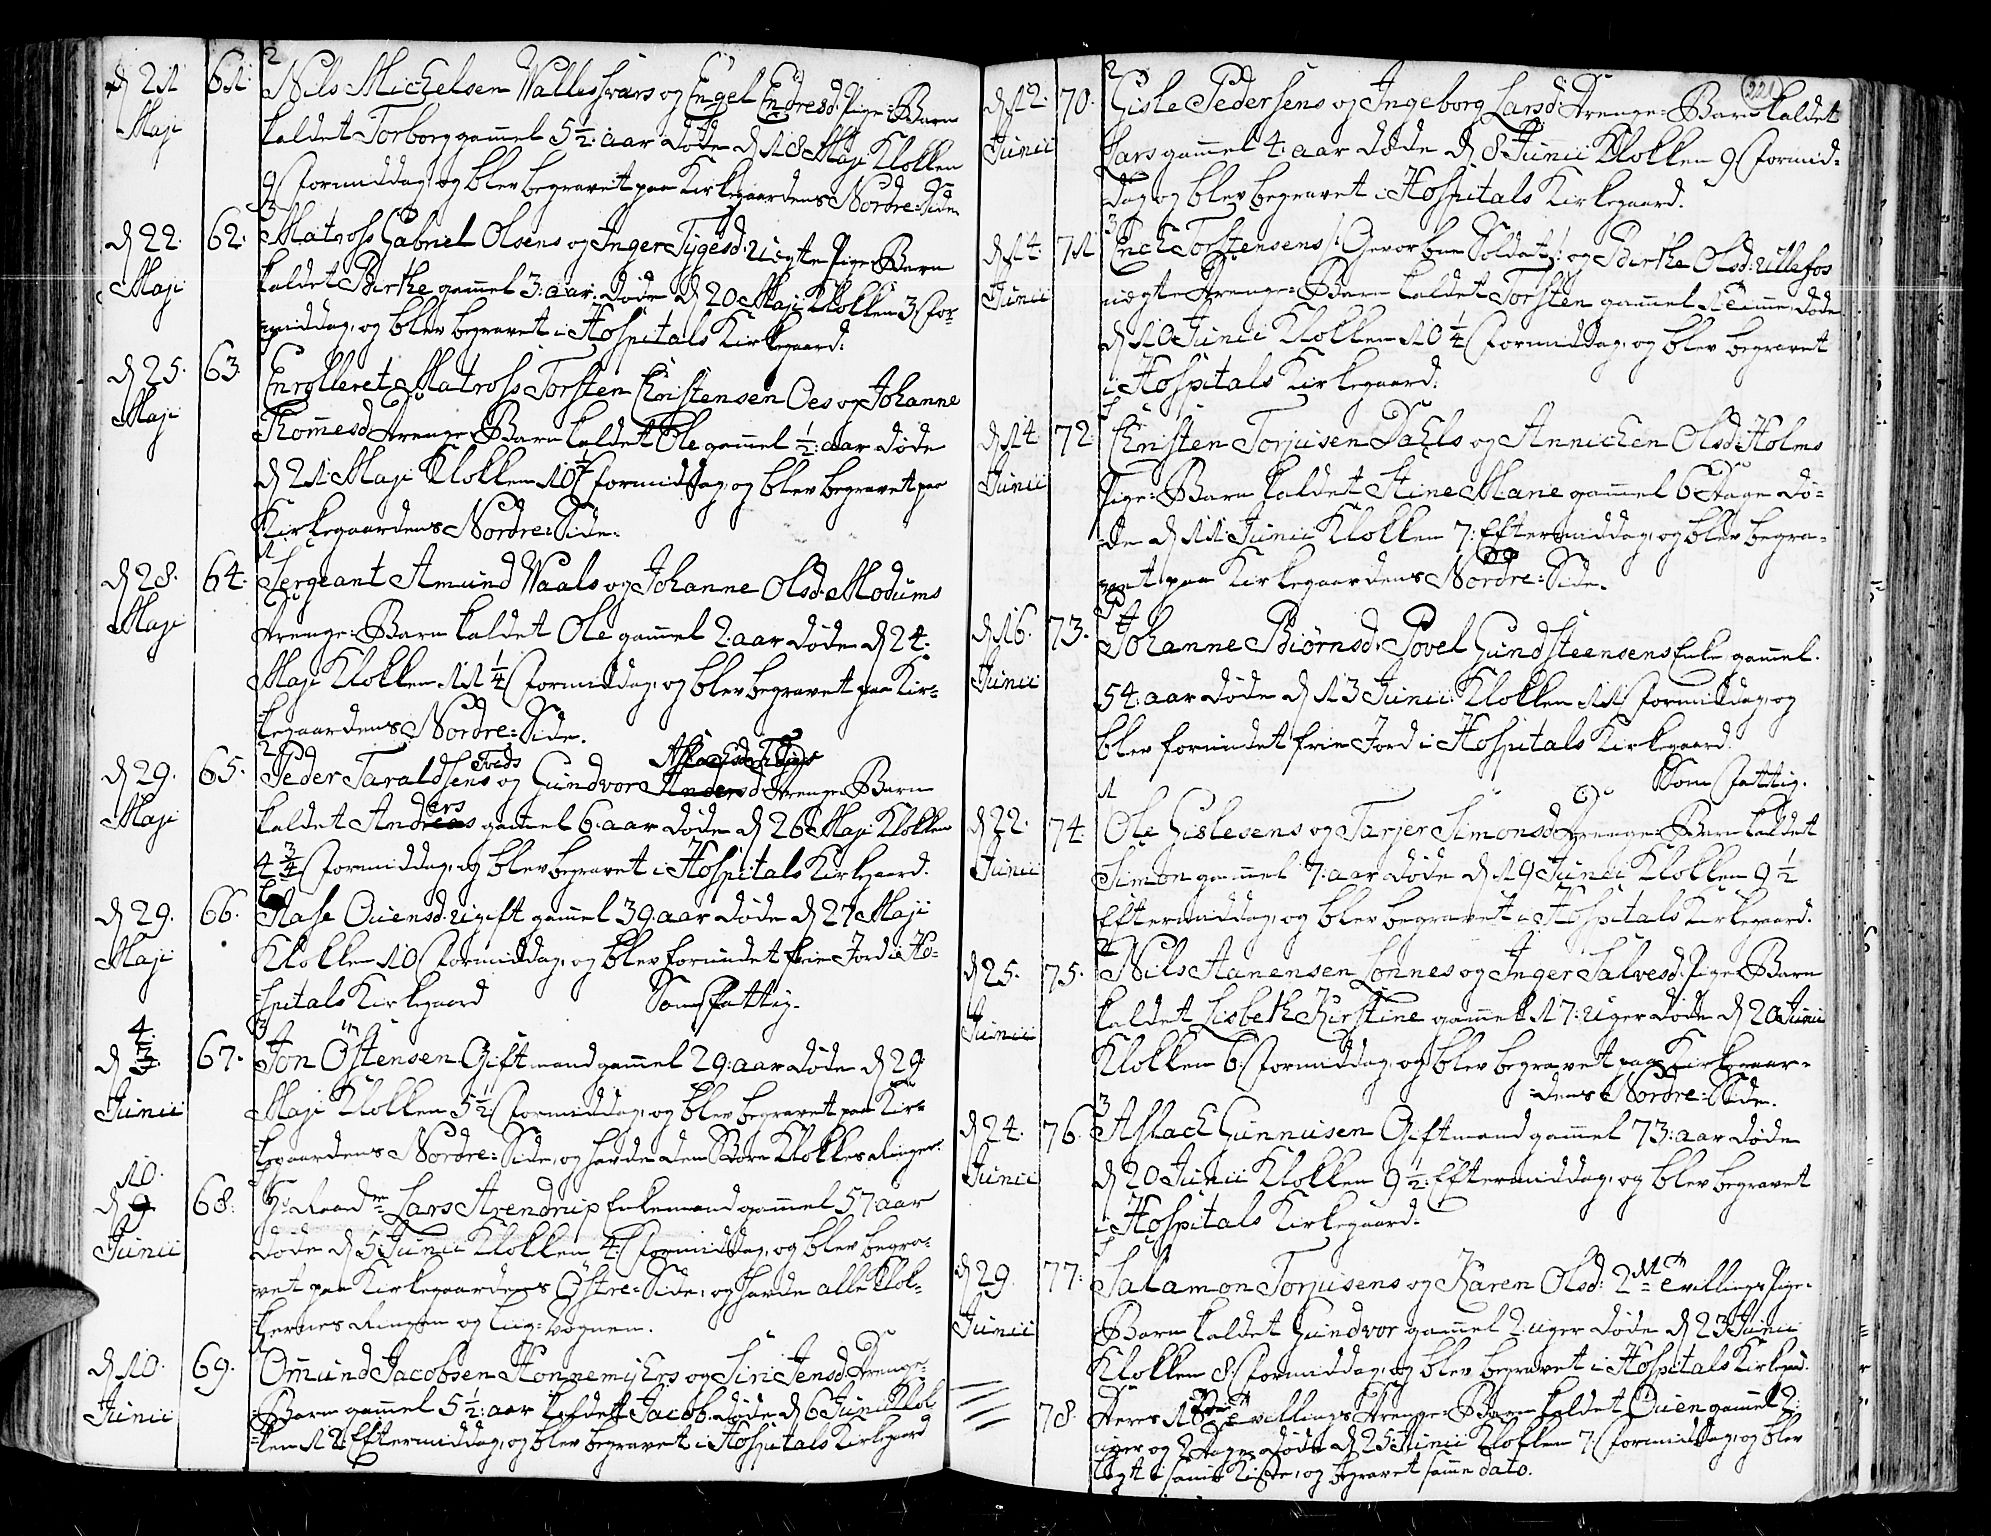 221
d 21 Maji 61. Nils Michelsen Wallesværs og Engel Endresd: Pige=Barn
kaldet Torborg gamel 5½: aar døde d 18 Maji Klokken
9 formiddag, og blev begravet paa Kirkegaardens Nordre=Side.
d 22. Maji 62. Matross Gabriel Olsens og Inger Tygesd: uegte Pige=Barn
kaldet Birthe gamel 3: aar døde d 20 Maji Klokken 3 for=
middag, og blev begravet i Hospitals Kirkegaard.
d 25. Maji 63 Enrolleret Matross Torsten Christensen Oes og Johanne
Thomesd Drenge=Barn kaldet Ole gamel ½: aar døde
d 21: Maji Klokken 10½ formiddag, og blev begravet paa
Kirkegaardens Nordre=Side.
d 28. Maji 64. Sergeant Amund Waals og Johanne Olsd: Modums
Drenge=Barn kaldet Ole gamel 2: aar døde d 24:
Maji Klokken 11¼ formiddag, og blev begravet paa Kir=
kegaardens Nordre=Side.
d 29. Maji 65. Peder Taraldsens Tveds og Gundvor Andersd Aslachsd Drenge=Barn
kaldet Anders gamel 6: aar døde d 26 Maji Klokken
4¾ formiddag, og blev begravet i Hospitals Kirkegaard.
d 29. Maji 66. Aase Ouensd: ugift gamel 39: aar døde d 27 Maji
Klokken 10 formiddag, og blev forundet frie Jord i Ho=
=spitals Kirkegaard Som fattig.
d 3 4. Junii 67. Jon Östensen Giftmand gamel 29: aar døde d 29
Maji Klokken 5½ formiddag, og blev begravet paa Kir=
kegaardens Nordre=Side, og havde den Store Klokkes Ringer.
d 9 10. Junii 68. Hr: Raadm Lars Arendrup Enkemand gamel 57 aar
døde d 5 Junii Klokken 4: formiddag, og blev begra=
=vet paa Kirkegaardens Østre=Side, og havde alle Klok=
kernes Ringen og Liig=Vognen.
d 10. Junii 69. Omund Jacobsen Honnemyhrs og Siri Jensd: Drenge=
=Barn gamel 5½: aar kaldet Jacob døde d 6 Junii Klok
ken 12: Eftermiddag, og blev begravet i Hospitals Kirkegaard
d 12. Junii 70. Gisle Pedersens og Ingeborg Larsd: Drenge=Barn kaldet
Lars gamel 4: aar døde d 8 Junii Klokken 9 formid=
dag og blev begravet i Hospitals Kirkegaard.
d 14. Junii 71 Erich Torstensens /: Gevorben Soldat :/ og Birthe Olsd: Ullefos
uægte Drenge=Barn kaldet Torsten gamel 1 time døde
d 10 Junii Klokken 10¼ formiddag, og blev begravet
i Hospitals Kirkegaard.
d 14 Junii 72 Christen Torjusen Dahls og Annichen Olsd: Holms
Pige=Barn kaldet Stine Marie gamel 6 Dage dø=
de d 11: Junii Klokken 7: Eftermiddag, og blev begra=
vet paa Kirkegaardens Nordre=Side.
d 16. Junii 73. Johanne Biørnsd: Povel Gundsteensens Enke gamel
54: aar døde d 13 Junii: Klokken 11 formiddag, og
blev forundet frie Jord i Hospitals Kirkegaard.
Som fattig.
d 22. Junii 74. Ole Gislesens og Tarjer Simonsd Drenge=Barn kaldet
Simon gamel 7: aar døde d 19 Junii Klokken 9½
Eftermiddag, og blev begravet i Hospitals Kirkegaard.
d 25. Junii 75. Nils Aanensen Lonnes og Inger Salvesd: Pige=Barn
kaldet Lisbeth Kirstine gamel 17: Uger døde d 20 Junii
Klokken 6: formiddag, og blev begravet paa Kirkegaar=
=dens Nordre=Side.
d 24. Junii 76 Aslach Gunnusen Giftmand gamel 73: aar døde
d 20 Junii Klokken 9½: Eftermiddag, og blev begravet
i Hospitals Kirkegaard.
d 29. Junii 77. Salamon Torjusens og Karen Olsd: 2de Tvillings Pige=
Barn kaldet Gundvor gamel 2: uger døde d 23 Junii
Klokken 8 formiddag, og blev begravet i Hospitals Kirkegaard.
78. Deres Tvillings Drenge=Barn kaldet Ouen gamel 2:
uger og 2 Dage døde d 25 Junii Klokken 7: formiddag, og blev
lagt i same Kiste, og begravet same dato.